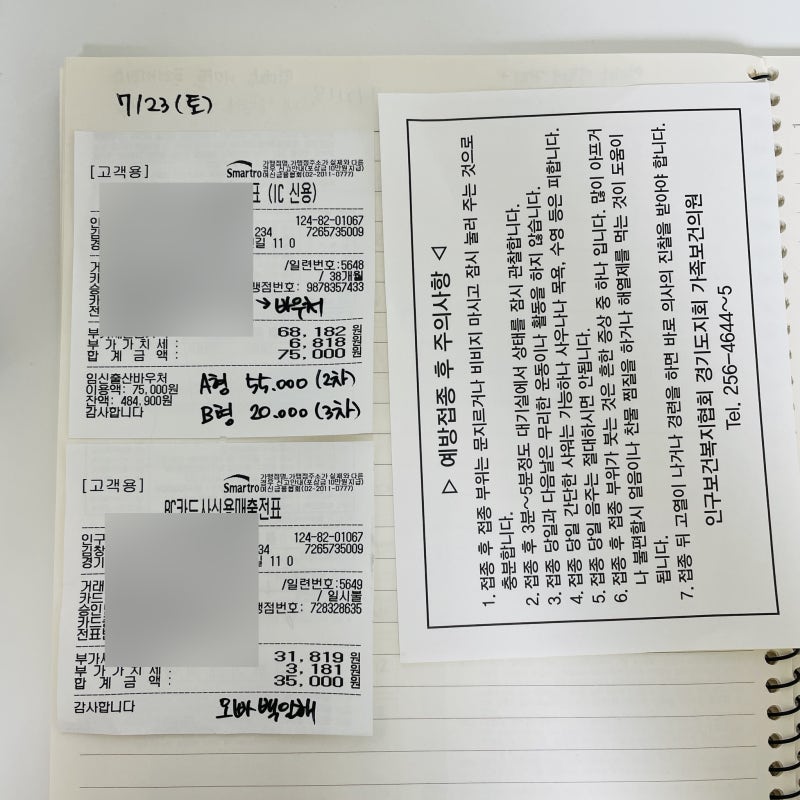 7/23 (토)
[고객용]
Smartro
가맹점명,가맹점주소가 실제와 다른
경우 신고안내(포상금 10만원 지급)
여신금융협회(02-2011-0777)
표 (IC 신용)
124-82-01067
234 7265735009
길 11 0
/일련번호:5648
/ 38개월
맹점번호: 9878357433
→ 바우처
68,182 원
부가가치세: 6,818 원
합계금액: 75,000 원
임신출산바우처
이용액: 75,000원
잔액: 484,900원
감사합니다
A형 55.000 (2차)
B형 20.000 (3차)
[고객용]
Smartro
가맹점명,가맹점주소가 실제와 다른
경우 신고안내(포상금 10만원 지급)
여신금융협회(02-2011-0777)
BC카드사신용매출전표
인구 124-82-01067
김창 34 7265735009
경기 길 11 0
거래 /일련번호:5649
카드 / 일시불
승인 맹점번호: 728328635
카드
전표
부가세 31,819 원
부가가치세: 3,181 원
합계금액: 35,000 원
감사합니다
오빠 백일해
▷ 예방접종 후 주의사항 ◁
1. 접종 후 접종 부위는 문지르거나 비비지 마시고 잠시 눌러 주는 것으로
충분합니다.
2. 접종 후 3분~5분정도 대기실에서 상태를 잠시 관찰합니다.
3. 접종 당일과 다음날은 무리한 운동이나 활동을 하지 않습니다.
4. 접종 당일 간단한 샤워는 가능하나 사우나나 목욕, 수영 등은 피합니다.
5. 접종 당일 음주는 절대하시면 안됩니다.
6. 접종 후 접종 부위가 붓는 것은 흔한 증상 중 하나 입니다. 많이 아프거
나 불편할시 얼음이나 찬물 찜질을 하거나 해열제를 먹는 것이 도움이
됩니다.
7. 접종 뒤 고열이 나거나 경련을 하면 바로 의사의 진찰을 받아야 합니다.
인구보건복지협회 경기도지회 가족보건의원
Tel. 256-4644~5